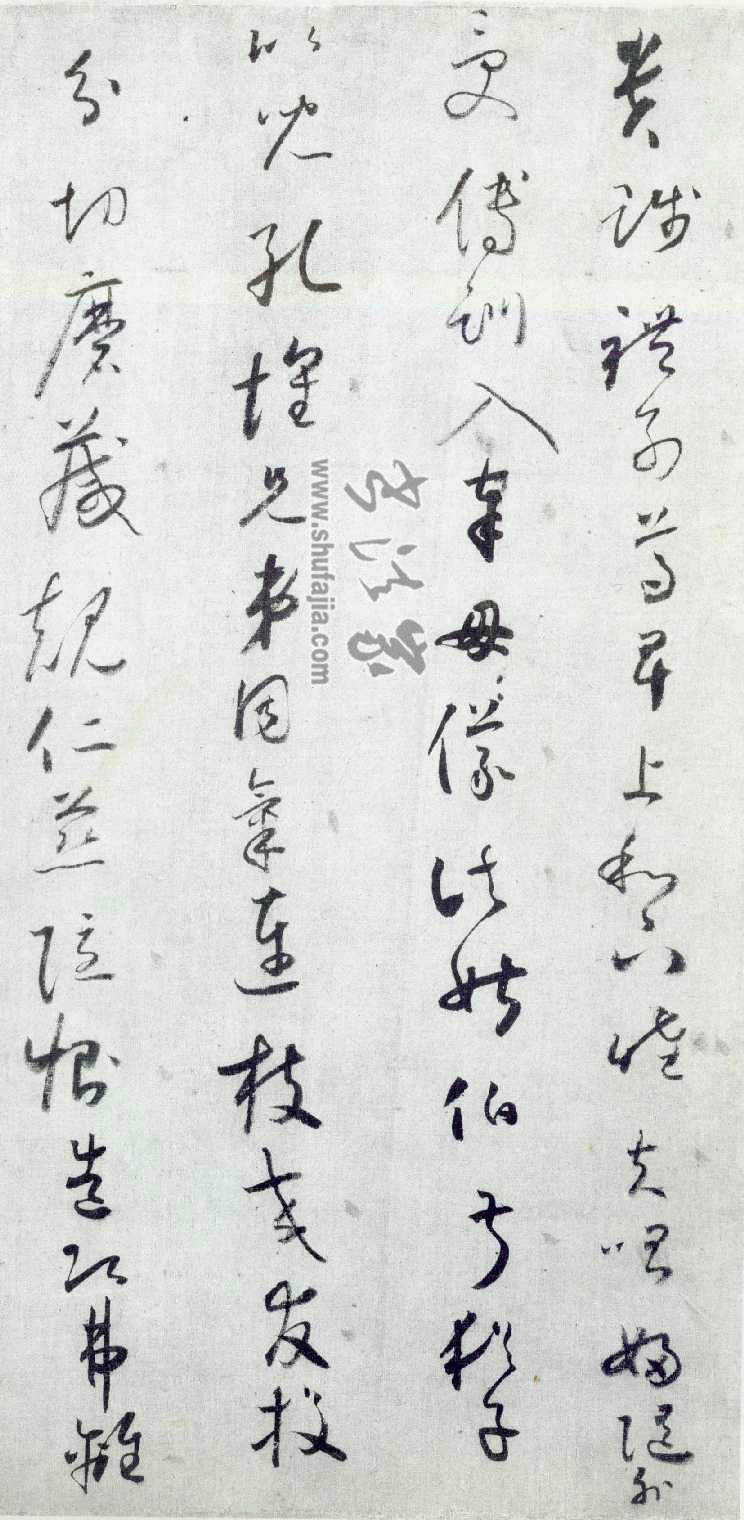 貴賤禮別尊卑上和下睦夫唱婦隨外
受傅訓入奉母儀諸姑伯叔猶子
比兒孔懷兄弟同氣連枝交友投
分切磨箴規仁慈隱惻造次弗離
书法家
www.shufajia.com